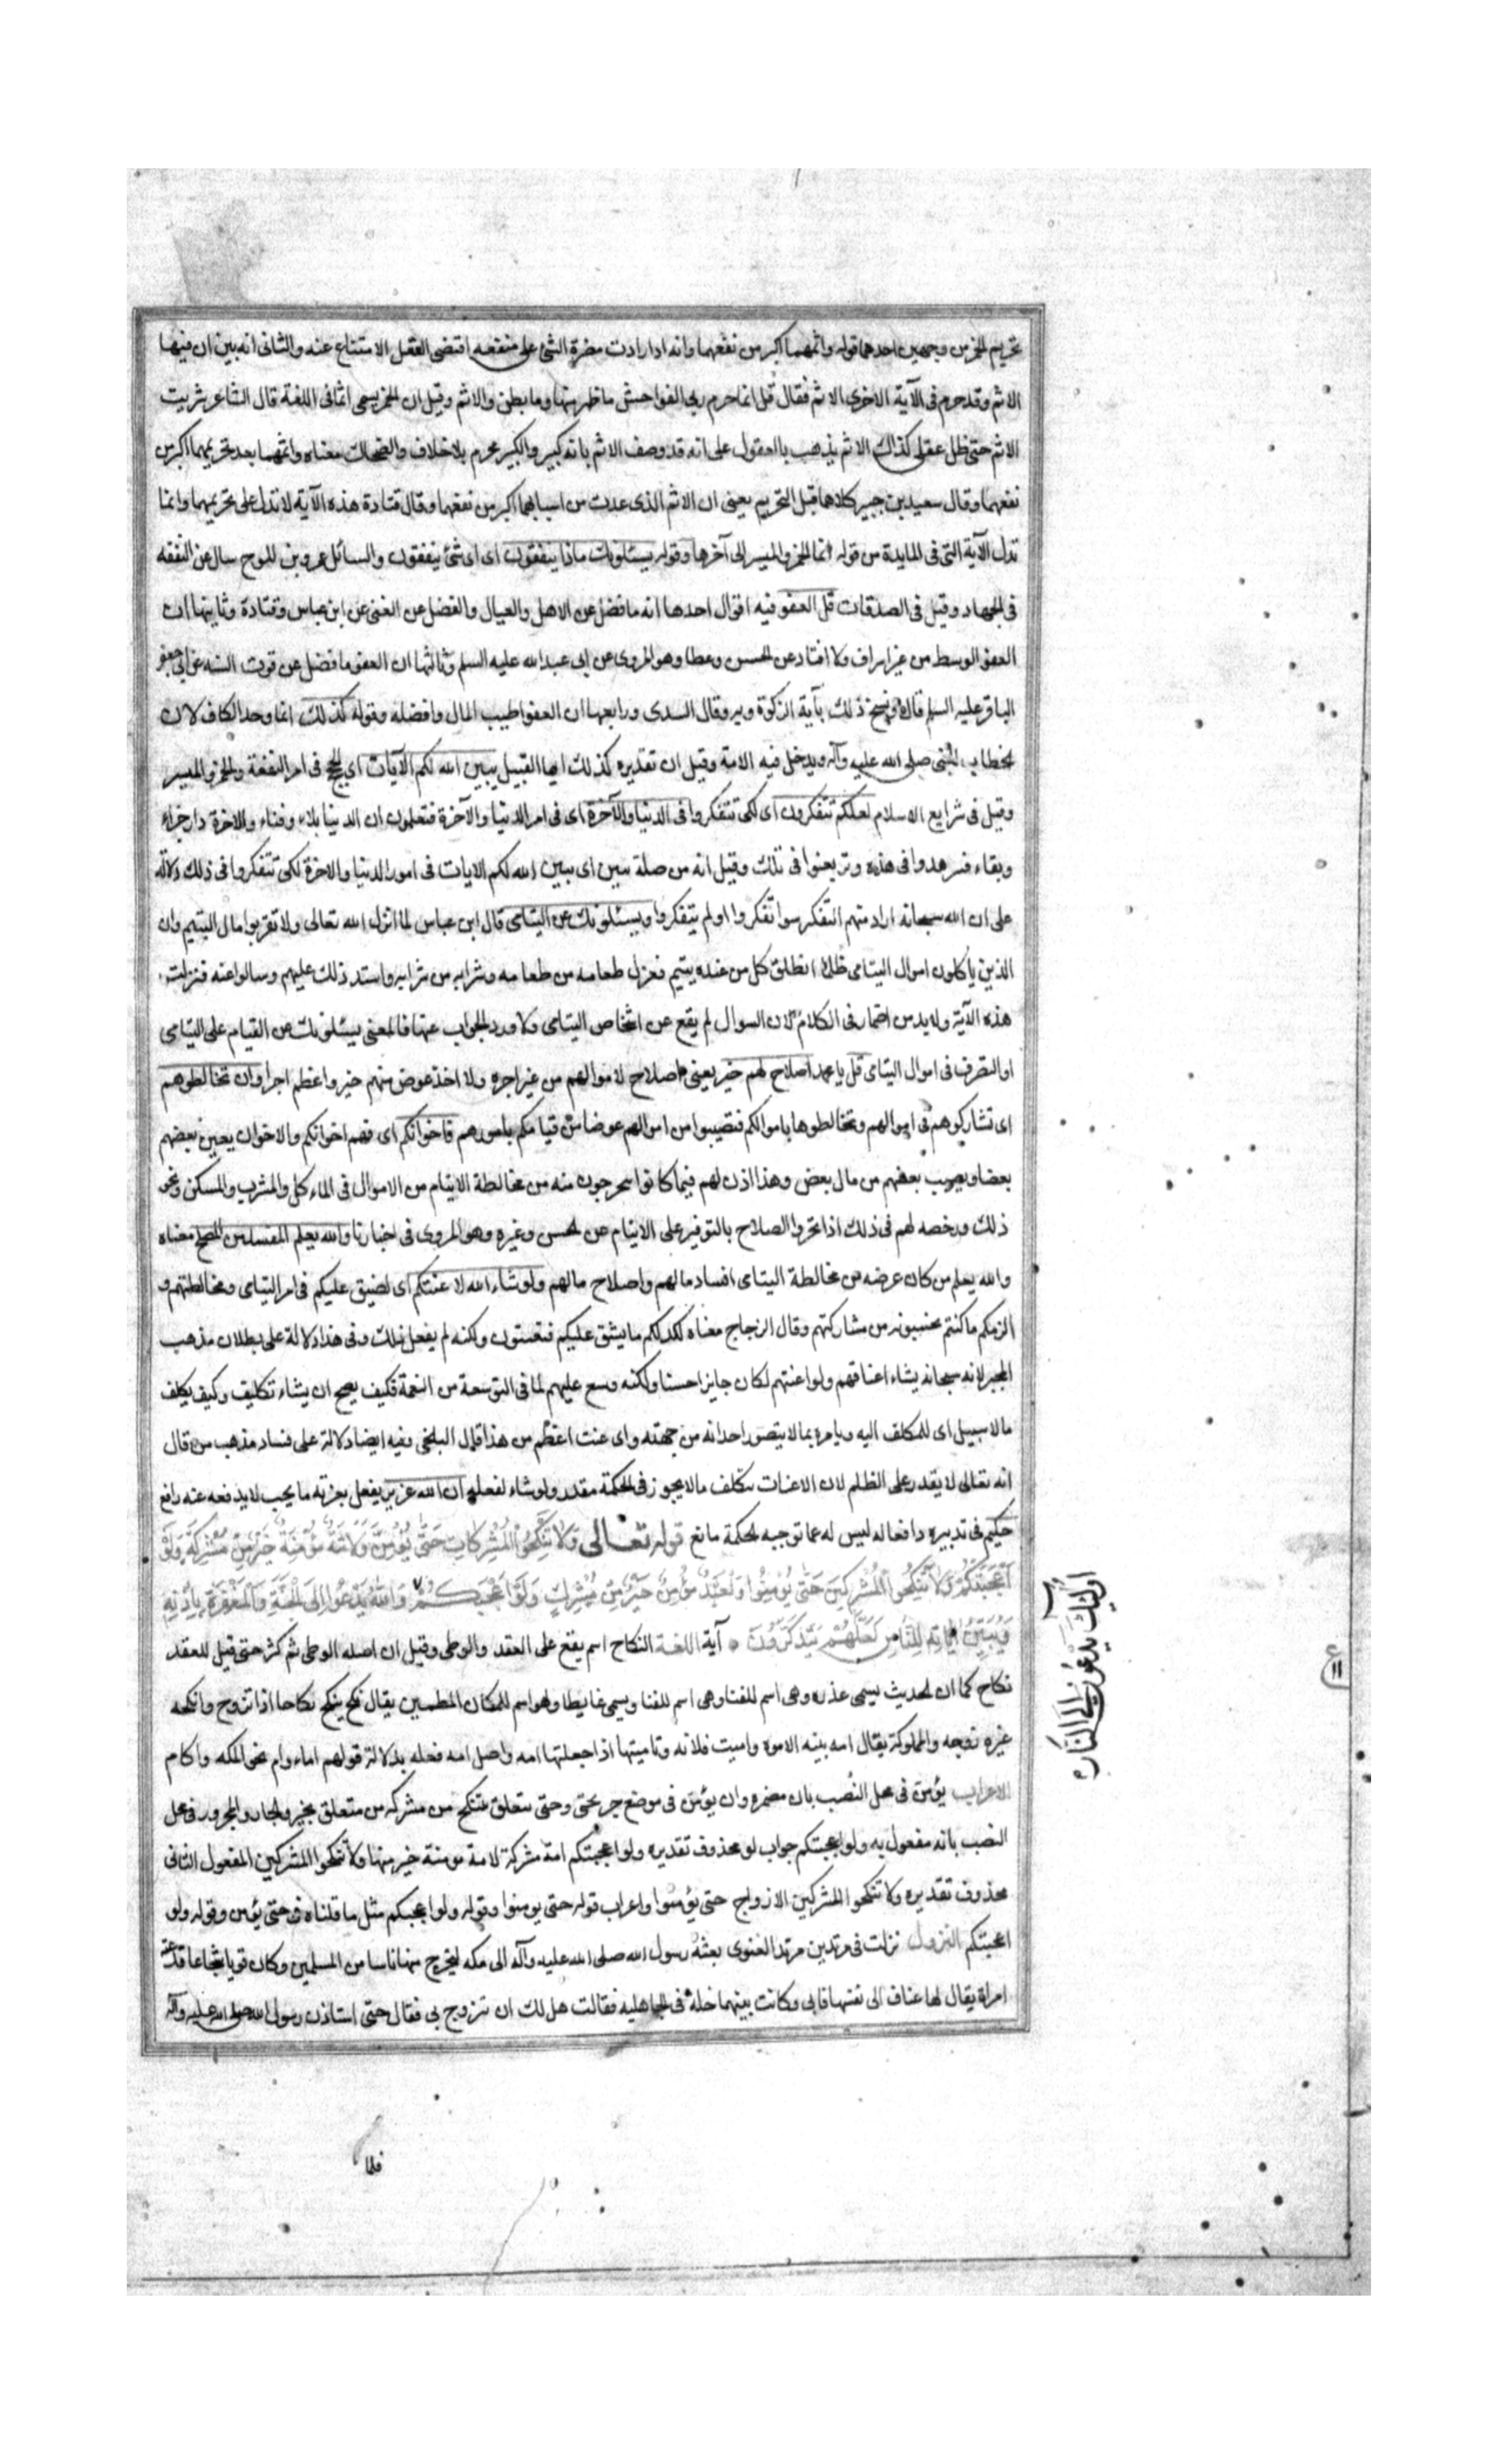 تحريم الخمر من وجهين احدهما قوله واثمهما اكبر من نفعهما وانه اذا زادت مضرة الشئ على منفعته اقتضى العقل الامتناع عنه والثانى انه بين ان فيهما
الاثم وقد حرم فى الآية الاخرى الاثم فقال قل انما حرم ربى الفواحش ما ظهر منها وما بطن والاثم وقيل ان الخمر يسمى اثما فى اللغة قال الشاعر شربت
الاثم حتى ظل عقلى كذاك الاثم يذهب بالعقول على انه قد وصف الاثم بانه كبير والكبير محرم بلا خلاف والضحاك معناه واثمهما بعد تحريمهما اكبر من
نفعهما وقال سعيد بن جبير كلاهما قبل التحريم يعنى ان الاثم الذى عدت من اسبابهما اكبر من نفعهما وقال قتادة هذه الآية لا تدل على تحريمهما وانما
تدل الآية التى فى المايدة من قوله انما الخمر والميسر الى آخرها وقوله يسئلونك ماذا ينفقون اى اى شئ ينفقون والسائل عمرو بن الجموح سال عن النفقه
فى الجهاد وقيل فى الصدقات قل العفو فيه اقوال احدها انه ما فضل عن الاهل والعيال والفضل عن الغنى عن ابن عباس وقتادة وثانيها ان
العفو الوسط من غير اسراف ولا اقتار عن الحسن وعطا وهو المروى عن ابى عبد الله عليه السلم وثالثها ان العفو ما فضل عن قوت السنه عن ابى جعفر
الباقر عليه السلم قال ونسخ ذلك بآية الزكوة وبه وقال السدى ورابعها ان العفو اطيب المال وافضله وقوله كذلك انما وحد الكاف لان
الخطاب للنبى صلى الله عليه وآله ويدخل فيه الامة وقيل ان تقديره كذلك ايها القبيل يبين الله لكم الآيات اى الحجج فى امر النفقة والخمر والميسر
وقيل فى شرايع الاسلام لعلكم تتفكرون اى لكى تتفكروا فى الدنيا والآخرة اى فى امر الدنيا والآخرة فتعلمون ان الدنيا بلاء وفناء والاخرة دار جزاء
وبقاء فتزهدوا فى هذه وترغبوا فى تلك وقيل انه من صلة يبين اى يبين الله لكم الايات فى امور الدنيا والاخرة لكى تتفكروا فى ذلك دلالة
على ان الله سبحانه اراد منهم التفكر سوا تفكروا او لم يتفكروا ويسئلونك عن اليتامى قال ابن عباس لما انزل الله تعالى ولا تقربوا مال اليتيم وان
الذين ياكلون اموال اليتامى ظلما انطلق كل من عنده يتيم فعزل طعامه من طعامه وشرابه من شرابه واشتد ذلك عليهم وسالوا عنه فنزلت
هذه الآية ولا بد من اضمار فى الكلام لان السوال لم يقع عن اشخاص اليتامى ولا ورد الجواب عنها فالمعنى يسئلونك عن القيام على اليتامى
او التصرف فى اموال اليتامى قل يا محمد اصلاح لهم خير يعنى اصلاح لاموالهم من غير اجره ولا اخذ عوض منهم خير واعظم اجرا وان تخالطوهم
اى تشاركوهم فى اموالهم وتخالطوها باموالكم فتصيبوا من اموالهم عوضا من قيامكم بامورهم فاخوانكم اى فهم اخوانكم والاخوان يعين بعضهم
بعضا ويصيب بعضهم من مال بعض وهذا اذن لهم فيما كانوا يتحرجون منه من مخالطة الايتام من الاموال فى الماءكل والمشرب والمسكن ونحو
ذلك ورخصه لهم فى ذلك اذا تحروا الصلاح بالتوفير على الايتام عن الحسن وغيره وهو المروى فى اخبارنا والله يعلم المفسد من المصلح معناه
والله يعلم من كان غرضه من مخالطة اليتامى افساد مالهم واصلاح مالهم ولو شاء الله لاعنتكم اى لضيق عليكم فى امر اليتامى ومخالطتهم و
الزمكم ما كنتم تجتنبونه من مشاركتهم وقال الزجاج معناه لكلفكم ما يشق عليكم فتعنتون ولكنه لم يفعل ذلك وفى هذا دلالة على بطلان مذهب
المجبر لانه سبحانه يشاء اعناتهم ولو اعنتهم لكان جايزا حسنا ولكنه وسع عليهم لما فى التوسعة من النعمة فكيف يصح ان يشاء تكليف وكيف يكلف
ما لا سبيل اى للمكلف اليه ويامره بما لا يتصور احداثه من جهته واى عنت اعظم من هذا قال البلخى وفيه ايضا دلالة على فساد مذهب من قال
انه تعالى لا يقدر على الظلم لان الاعنات بتكلف ما لا يجوز فى الحكمة مقدور ولو شاء لفعله ان الله عزيز يفعل بعزته ما يحب لا يدفعه عنه دافع
حكيم فى تدبيره وافعاله ليس له عما توجبه الحكمة مانع قوله تعالى وَلَا تَنْكِحُوا الْمُشْرِكَاتِ حَتَّى يُؤْمِنَّ وَلَأَمَةٌ مُؤْمِنَةٌ خَيْرٌ مِنْ مُشْرِكَةٍ وَلَوْ
أَعْجَبَتْكُمْ وَلَا تُنْكِحُوا الْمُشْرِكِينَ حَتَّى يُؤْمِنُوا وَلَعَبْدٌ مُؤْمِنٌ خَيْرٌ مِنْ مُشْرِكٍ وَلَوْ أَعْجَبَكُمْ وَاللَّهُ يَدْعُوا إِلَى الْجَنَّةِ وَالْمَغْفِرَةِ بِإِذْنِهِ
وَيُبَيِّنُ آيَاتِهِ لِلنَّاسِ لَعَلَّهُمْ يَتَذَكَّرُونَ آية اللغة النكاح اسم يقع على العقد والوطى وقيل ان اصله الوطى ثم كثر حتى قيل للعقد
نكاح كما ان الحديث يسمى عذره وهى اسم للفنا وهى اسم للفنا ويسمى غايطا وهو اسم للمكان المطمين يقال نكح ينكح نكاحا اذا تزوج وانكحه
غيره زوجه والمملوكة يقال امه بينه الاموه واميت فلانه وتاميتها اذا جعلتها امه واصل امه فعله بدلالة قولهم اماء وام نحو اكمه واكام
الاعراب يؤمن فى محل النصب بان مضمره وان يؤمن فى موضع جر بحتى وحتى يتعلق بتنكح من مشركه من متعلق بخير والجار والمجرور فى محل
النصب بانه مفعول به ولو اعجبتكم جواب لو محذوف تقديره ولو اعجبتكم امة مشركة لامة مومنة خير منها ولا تنكحوا المشركين المفعول الثانى
محذوف تقديره ولا تنكحوا المشركين الازواج حتى يؤمنوا واعراب قوله حتى يومنوا وقوله ولو اعجبكم مثل ما قلناه فى حتى يؤمن وقوله ولو
اعجبتكم النزول نزلت فى مرتدين مرتد الغنوى بعثه رسول الله صلى الله عليه وآله الى مكه ليخرج منها ناسا من المسلمين وكان قويا شجاعا فدعته
امراة يقال لها عناف الى نفسها فابى وكانت بينهما خلة فى الجاهليه فقالت هل لك ان تتزوج بى فقال حتى استاذن رسول الله صلى الله عليه وآله
أُولَئِكَ يَدْعُونَ إِلَى النَّارِ
ع
١١
فلما